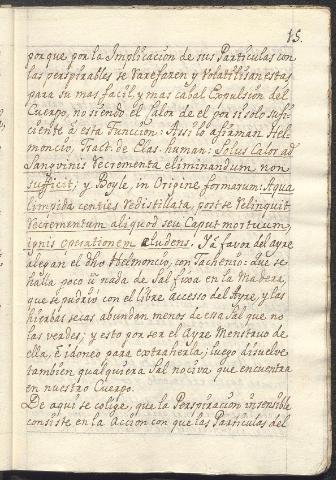 15.
porque por la Implicacion de sus Particulas con
las perspirables se rarefacen y Volatilisan estas
para su mas facil, y mas cabal Expulsion del
Cuerpo, no siendo el Calor de el por si solo sufi-
ciente à esta Funccion: Assi lo afirman Hel-
moncio, Tract. de Blas. human: Solus Calor ad
Sanguinis recrementa eliminandum, non
sufficit; y Boyle, in Origine formarum: Aqua
limpida centies redistillata, post se relinquit
recrementum aliquod seu Caput mortuum,
ignis operationem eludens. Yà favor del ayre
alegan el dho Helmoncio, con Tachenio: que se
halla poco u nada de Sal fixa en la Madera,
que se pudriò con el libre accesso del Ayre, y las
hierbas secas abundan menos de esa Sal que no
las verdes; y esto por ser el Ayre Menstruo de
ella, è idoneo para extraherla; luego disuelve
tambien qualquiera Sal nociva que encuentra
en nuestro Cuerpo.
De aqui se colige, que la Perspiracion insensible
consiste en la Accion con que las Particulas del